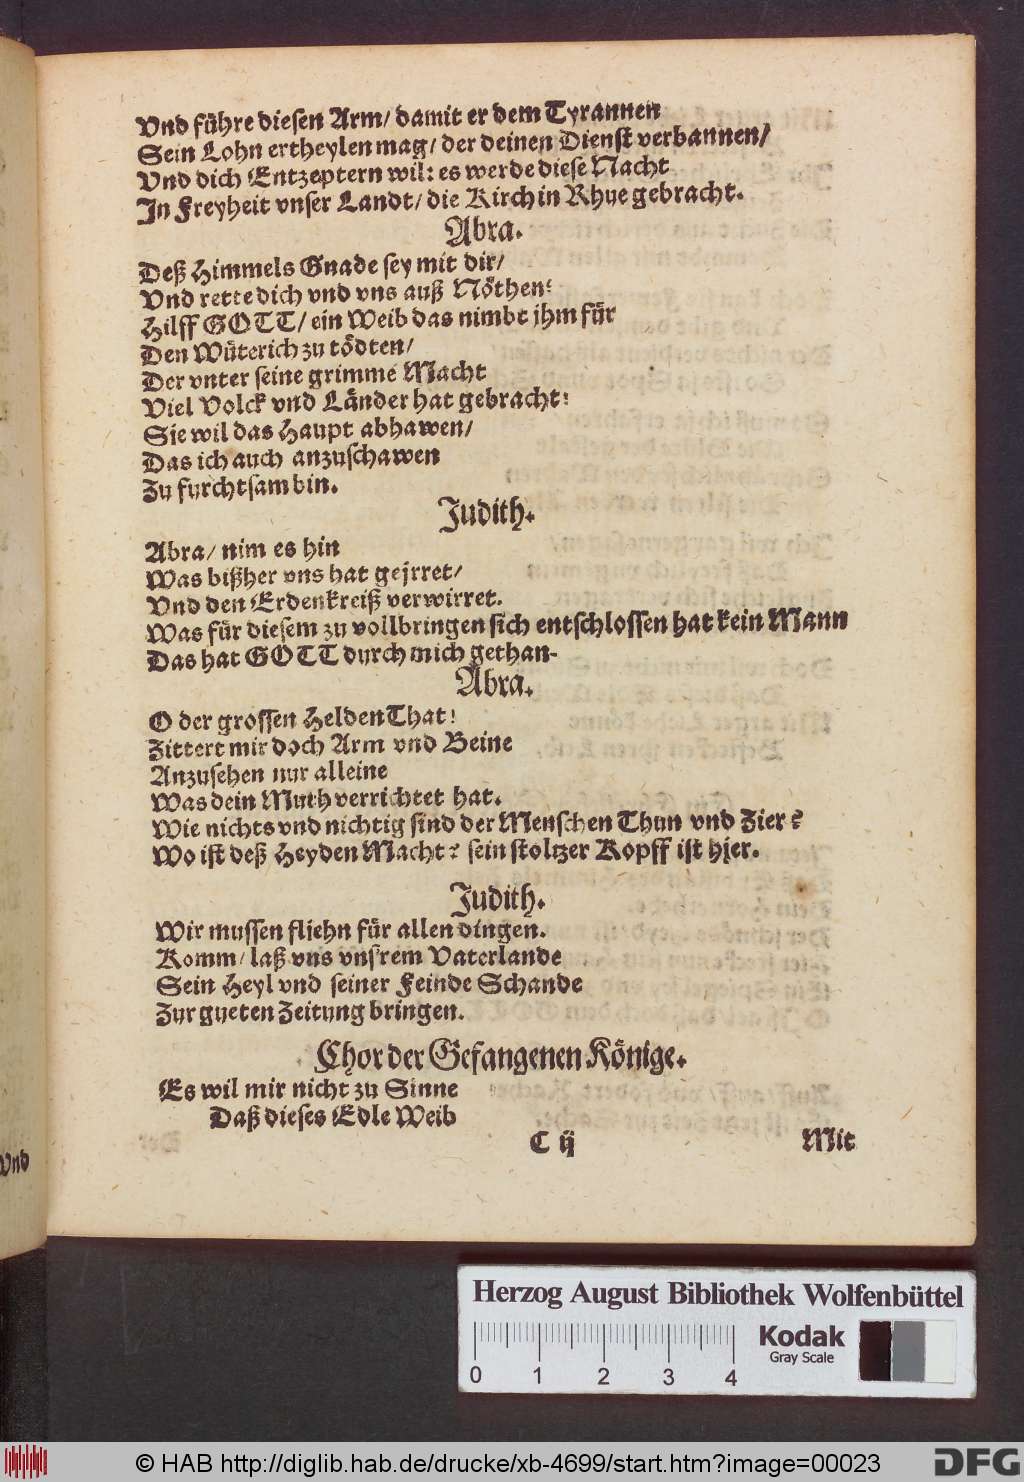 Vnd führe diesen Arm/ damit er dem Tyrannen
Sein Lohn ertheylen mag/ der deinen Dienst verbannen/
Vnd dich Entzeptern wil: es werde diese Nacht
In Freyheit vnser Landt/ die Kirch in Rhue gebracht.
Abra.
Deß Himmels Gnade sey mit dir/
Vnd rette dich vnd vns auß Nöthen!
Hilff GOTT/ ein Weib das nimbt jhm für
Den Wüterich zu tödten/
Der vnter seine grimme Macht
Viel Volck vnd Länder hat gebracht!
Sie wil das Haupt abhawen/
Das ich auch anzuschawen
Zu furchtsam bin.
Judith.
Abra/ nim es hin
Was bißher vns hat gejrret/
Vnd den Erdenkreiß verwirret.
Was für diesem zu vollbringen sich entschlossen hat kein Mann
Das hat GOTT durch mich gethan.
Abra.
O der grossen Helden That!
Zittert mir doch Arm vnd Beine
Anzusehen nur alleine
Was dein Muth verrichtet hat.
Wie nichts vnd nichtig sind der Menschen Thun vnd Zier?
Wo ist deß Heyden Macht? sein stoltzer Kopff ist hier.
Judith.
Wir mussen fliehn für allen dingen.
Komm/ laß vns vnsrem Vaterlande
Sein Heyl vnd seiner Feinde Schande
Zur gueten Zeitung bringen.
Chor der Gefangenen Könige.
Es wil mir nicht zu Sinne
Daß dieses Edle Weib
C ij
Mit
Vnd
Herzog August Bibliothek Wolfenbüttel
Kodak
Gray Scale
0 1 2 3 4
© HAB http://diglib.hab.de/drucke/xb-4699/start.htm?image=00023
DFG